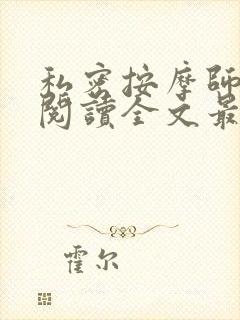 私密按摩師
閱讀全文最
霍尔